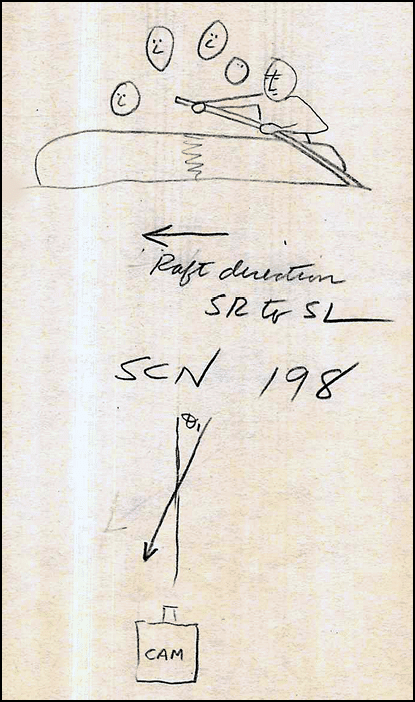 i i
i t
Raft direction
SR to SL
SCN 198
θ1
CAM